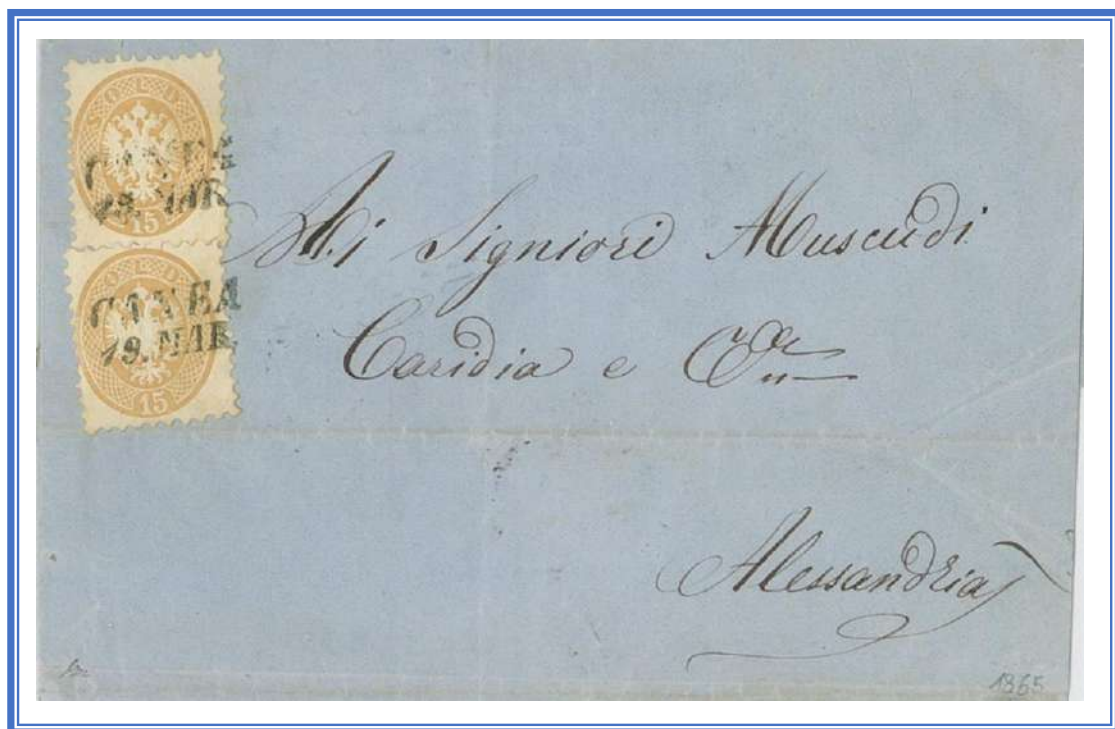 SOLDI
CANEA
19. MAR.
15
SOLDI
CANEA
19. MAR.
15
Ai Signiori Muscudi
Caridia e
Alessandria
1865